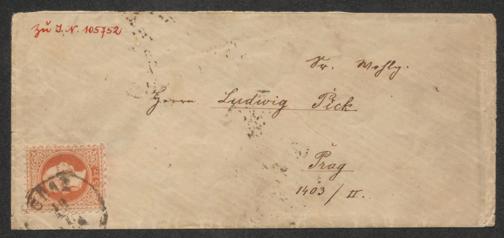 Zu I. N. 105752
Sr. Wohlg.
Herrn Ludwig Pick
Prag
1403/II.